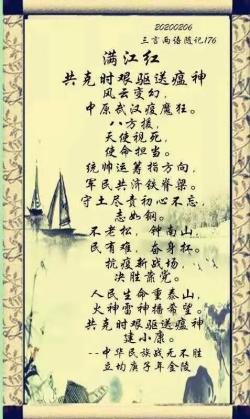 20200206
三言两语随记176
满江红
共克时艰驱送瘟神
风云变幻，
中原武汉疫魔狂。
八方援，
天使视死，
使命担当。
统帅运筹指方向，
军民共济铁脊梁。
守土尽责初心不忘，
志如钢。
不老松，钟南山，
民有难，奋身杠。
抗疫新战场，
决胜荣党。
人民生命重泰山，
火神雷神播希望。
共克时艰驱送瘟神
建小康。
--中华民族战无不胜
立均庚子年金陵